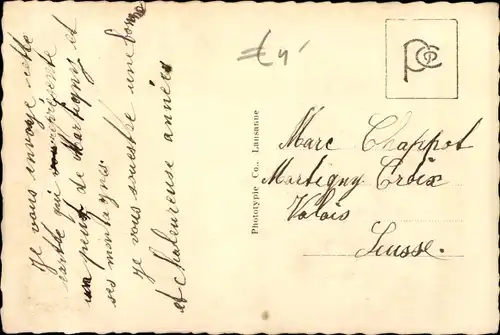 Je vous envoye cette
carthe qui vous représente
un peut de Martigny et
ses montagnes.
Je vous souestre une bonne
et chaleureuse année
£4'
Phototypie Co., Lausanne
PCo
Marc Chappot
Martigny Croix
Valais
Suisse.